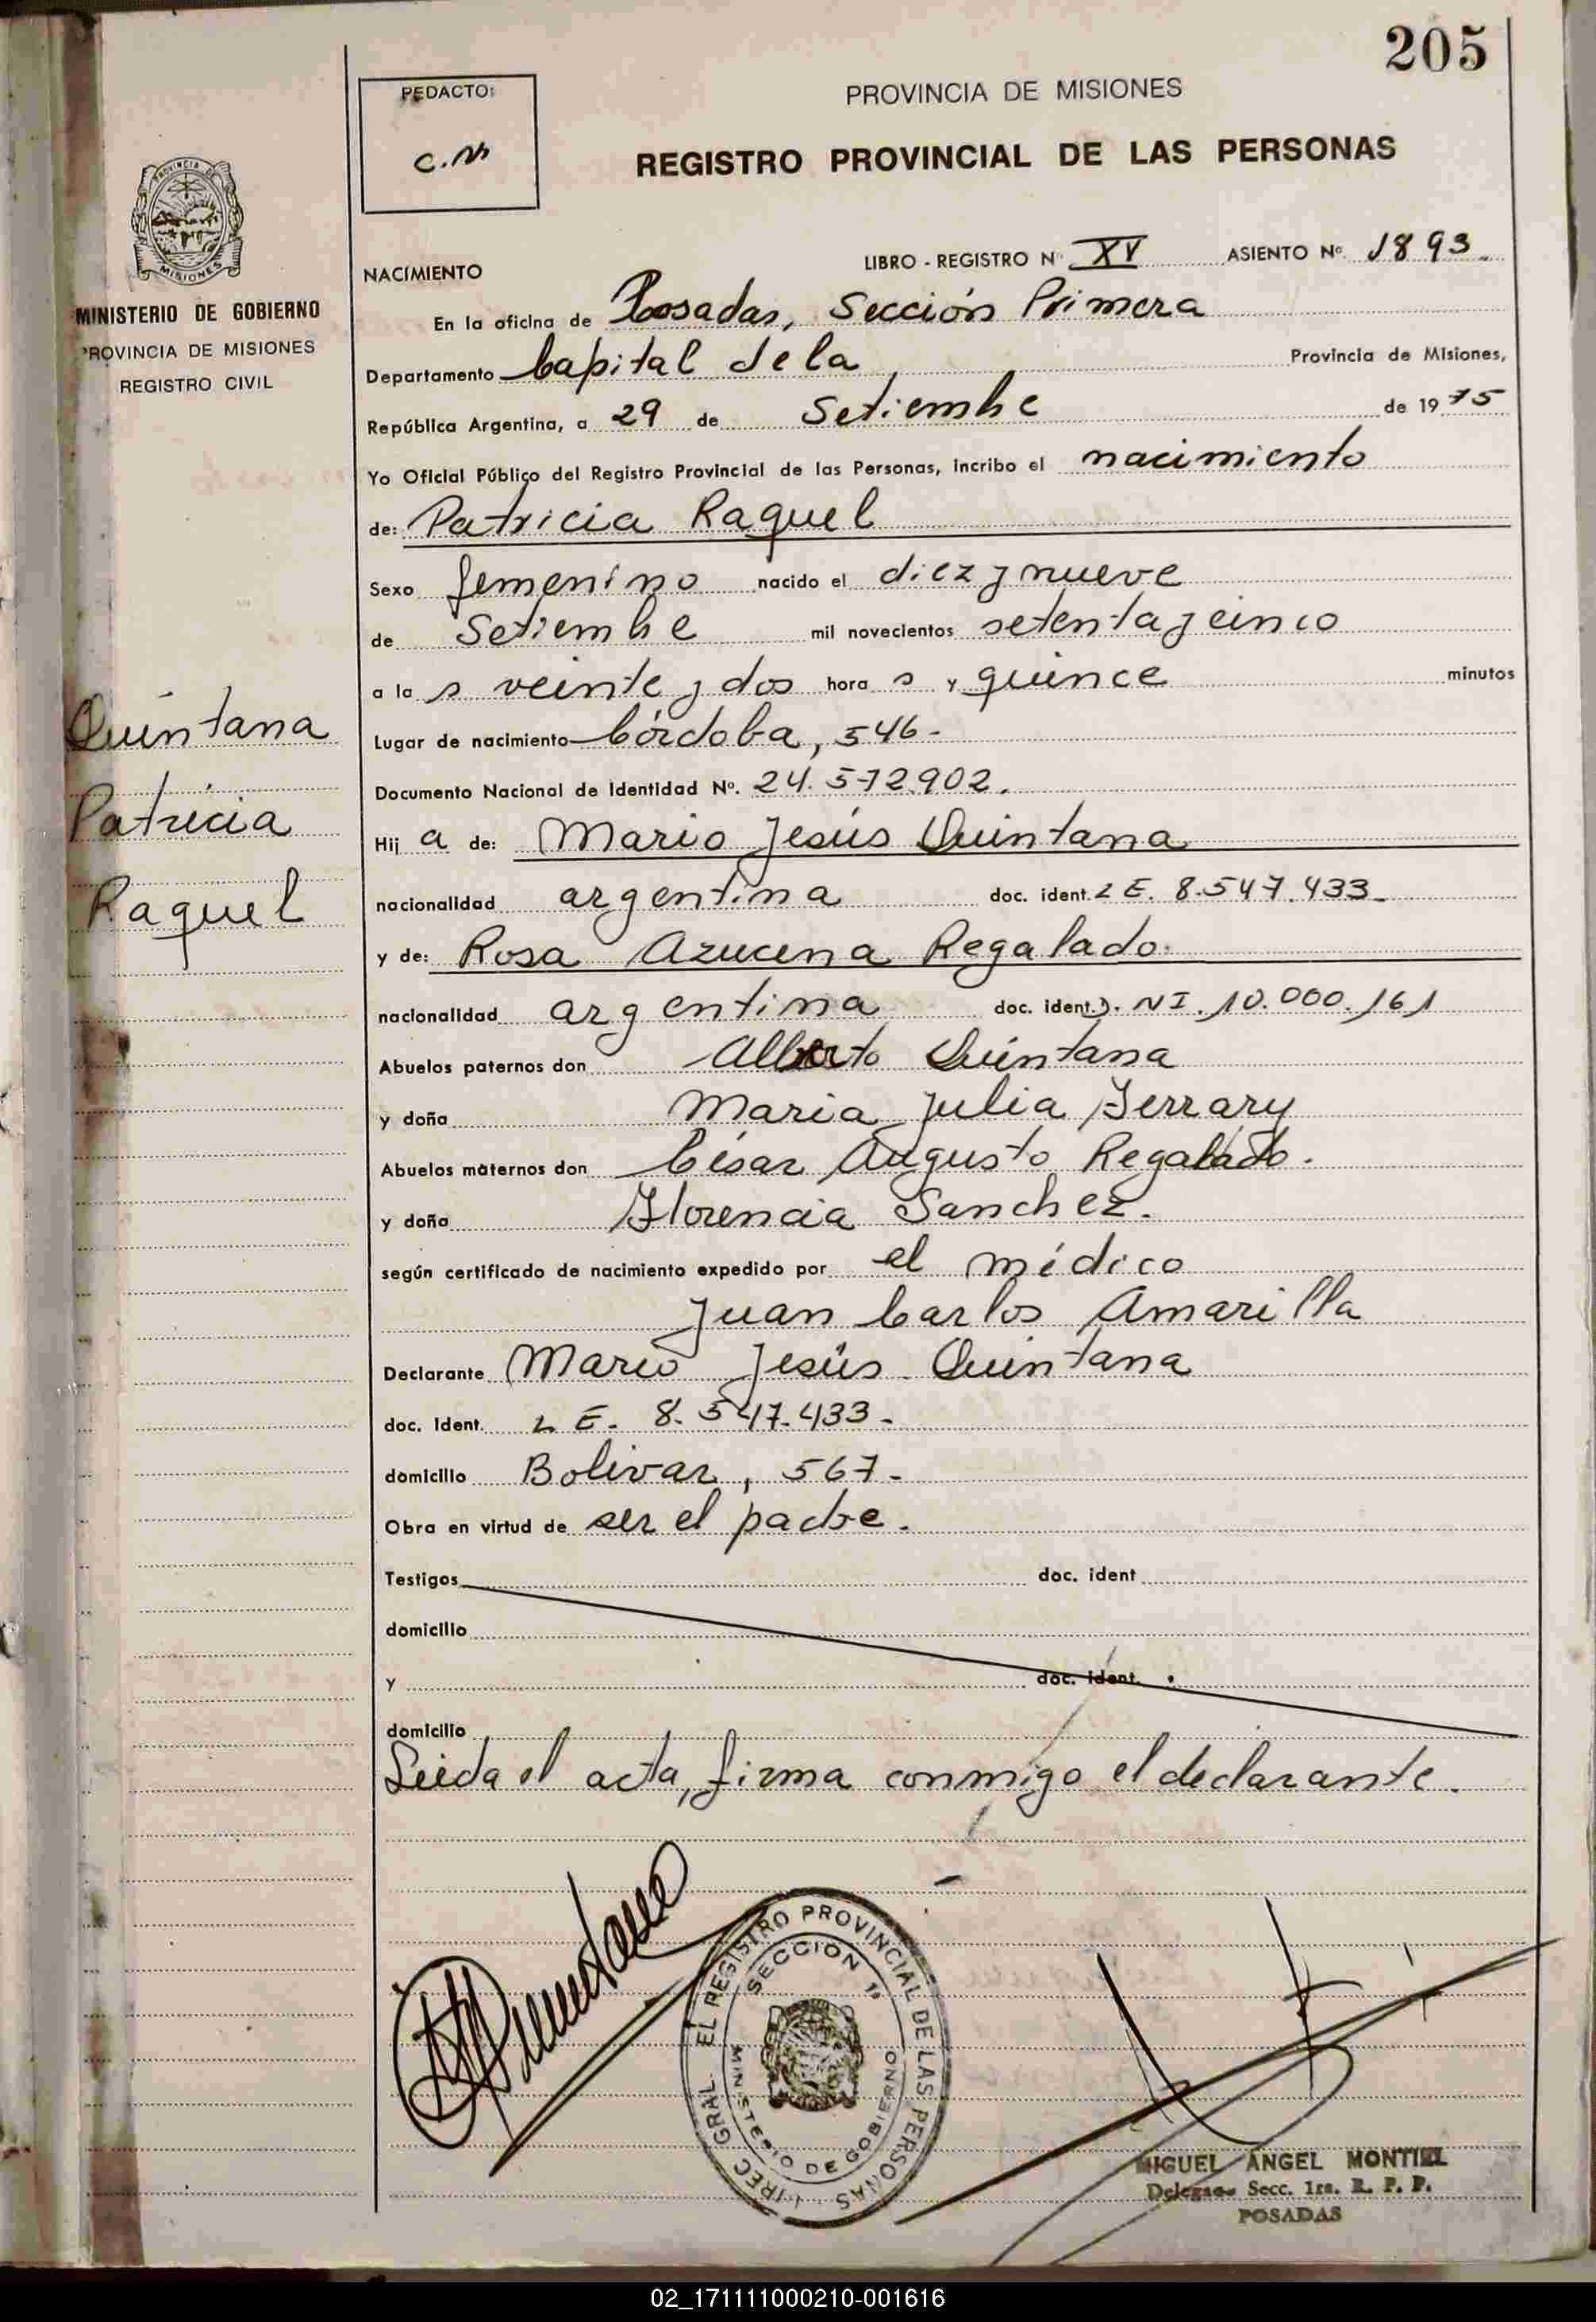 205
PEDACTO:
C.M
PROVINCIA DE MISIONES
REGISTRO PROVINCIAL DE LAS PERSONAS
PROVINCIA DE
MISIONES
MINISTERIO DE GOBIERNO
PROVINCIA DE MISIONES
REGISTRO CIVIL
NACIMIENTO
LIBRO - REGISTRO Nº XV ASIENTO Nº. 1893.
En la oficina de Posadas, Sección Primera
Departamento Capital de la Provincia de Misiones,
República Argentina, a 29 de Setiembre de 1975
Yo Oficial Público del Registro Provincial de las Personas, incribo el nacimiento
de: Patricia Raquel
Sexo femenino nacido el diez y nueve
de Setiembre mil novecientos setenta y cinco
a la s veinte y dos hora s y quince minutos
Lugar de nacimiento Córdoba, 546-
Documento Nacional de Identidad Nº. 24.572.902.
Hij a de: Mario Jesús Quintana
nacionalidad argentina doc. ident. L E. 8.547.433-
y de: Rosa Azucena Regalado.
nacionalidad argentina doc. ident. D. NI. 10.000.161
Abuelos paternos don Alberto Quintana
y doña Maria Julia Ferrary
Abuelos maternos don César Augusto Regalado.
y doña Florencia Sanchez.
según certificado de nacimiento expedido por el médico
Juan Carlos Amarilla
Declarante Mario Jesús Quintana
doc. Ident. L E. 8.547.433-
domicilio Bolivar, 567-
Obra en virtud de ser el padre.
Testigos doc. ident
domicilio
y doc. ident.
domicilio
Leída el acta, firma conmigo el declarante.
Quintana
Patricia
Raquel
DIREC GRAL EL REGISTRO PROVINCIAL DE LAS PERSONAS
SECCION 1ª
MINISTERIO DE GOBIERNO
MIGUEL ANGEL MONTIEL
Delegado Secc. 1ra. R. P. P.
POSADAS
02_171111000210-001616